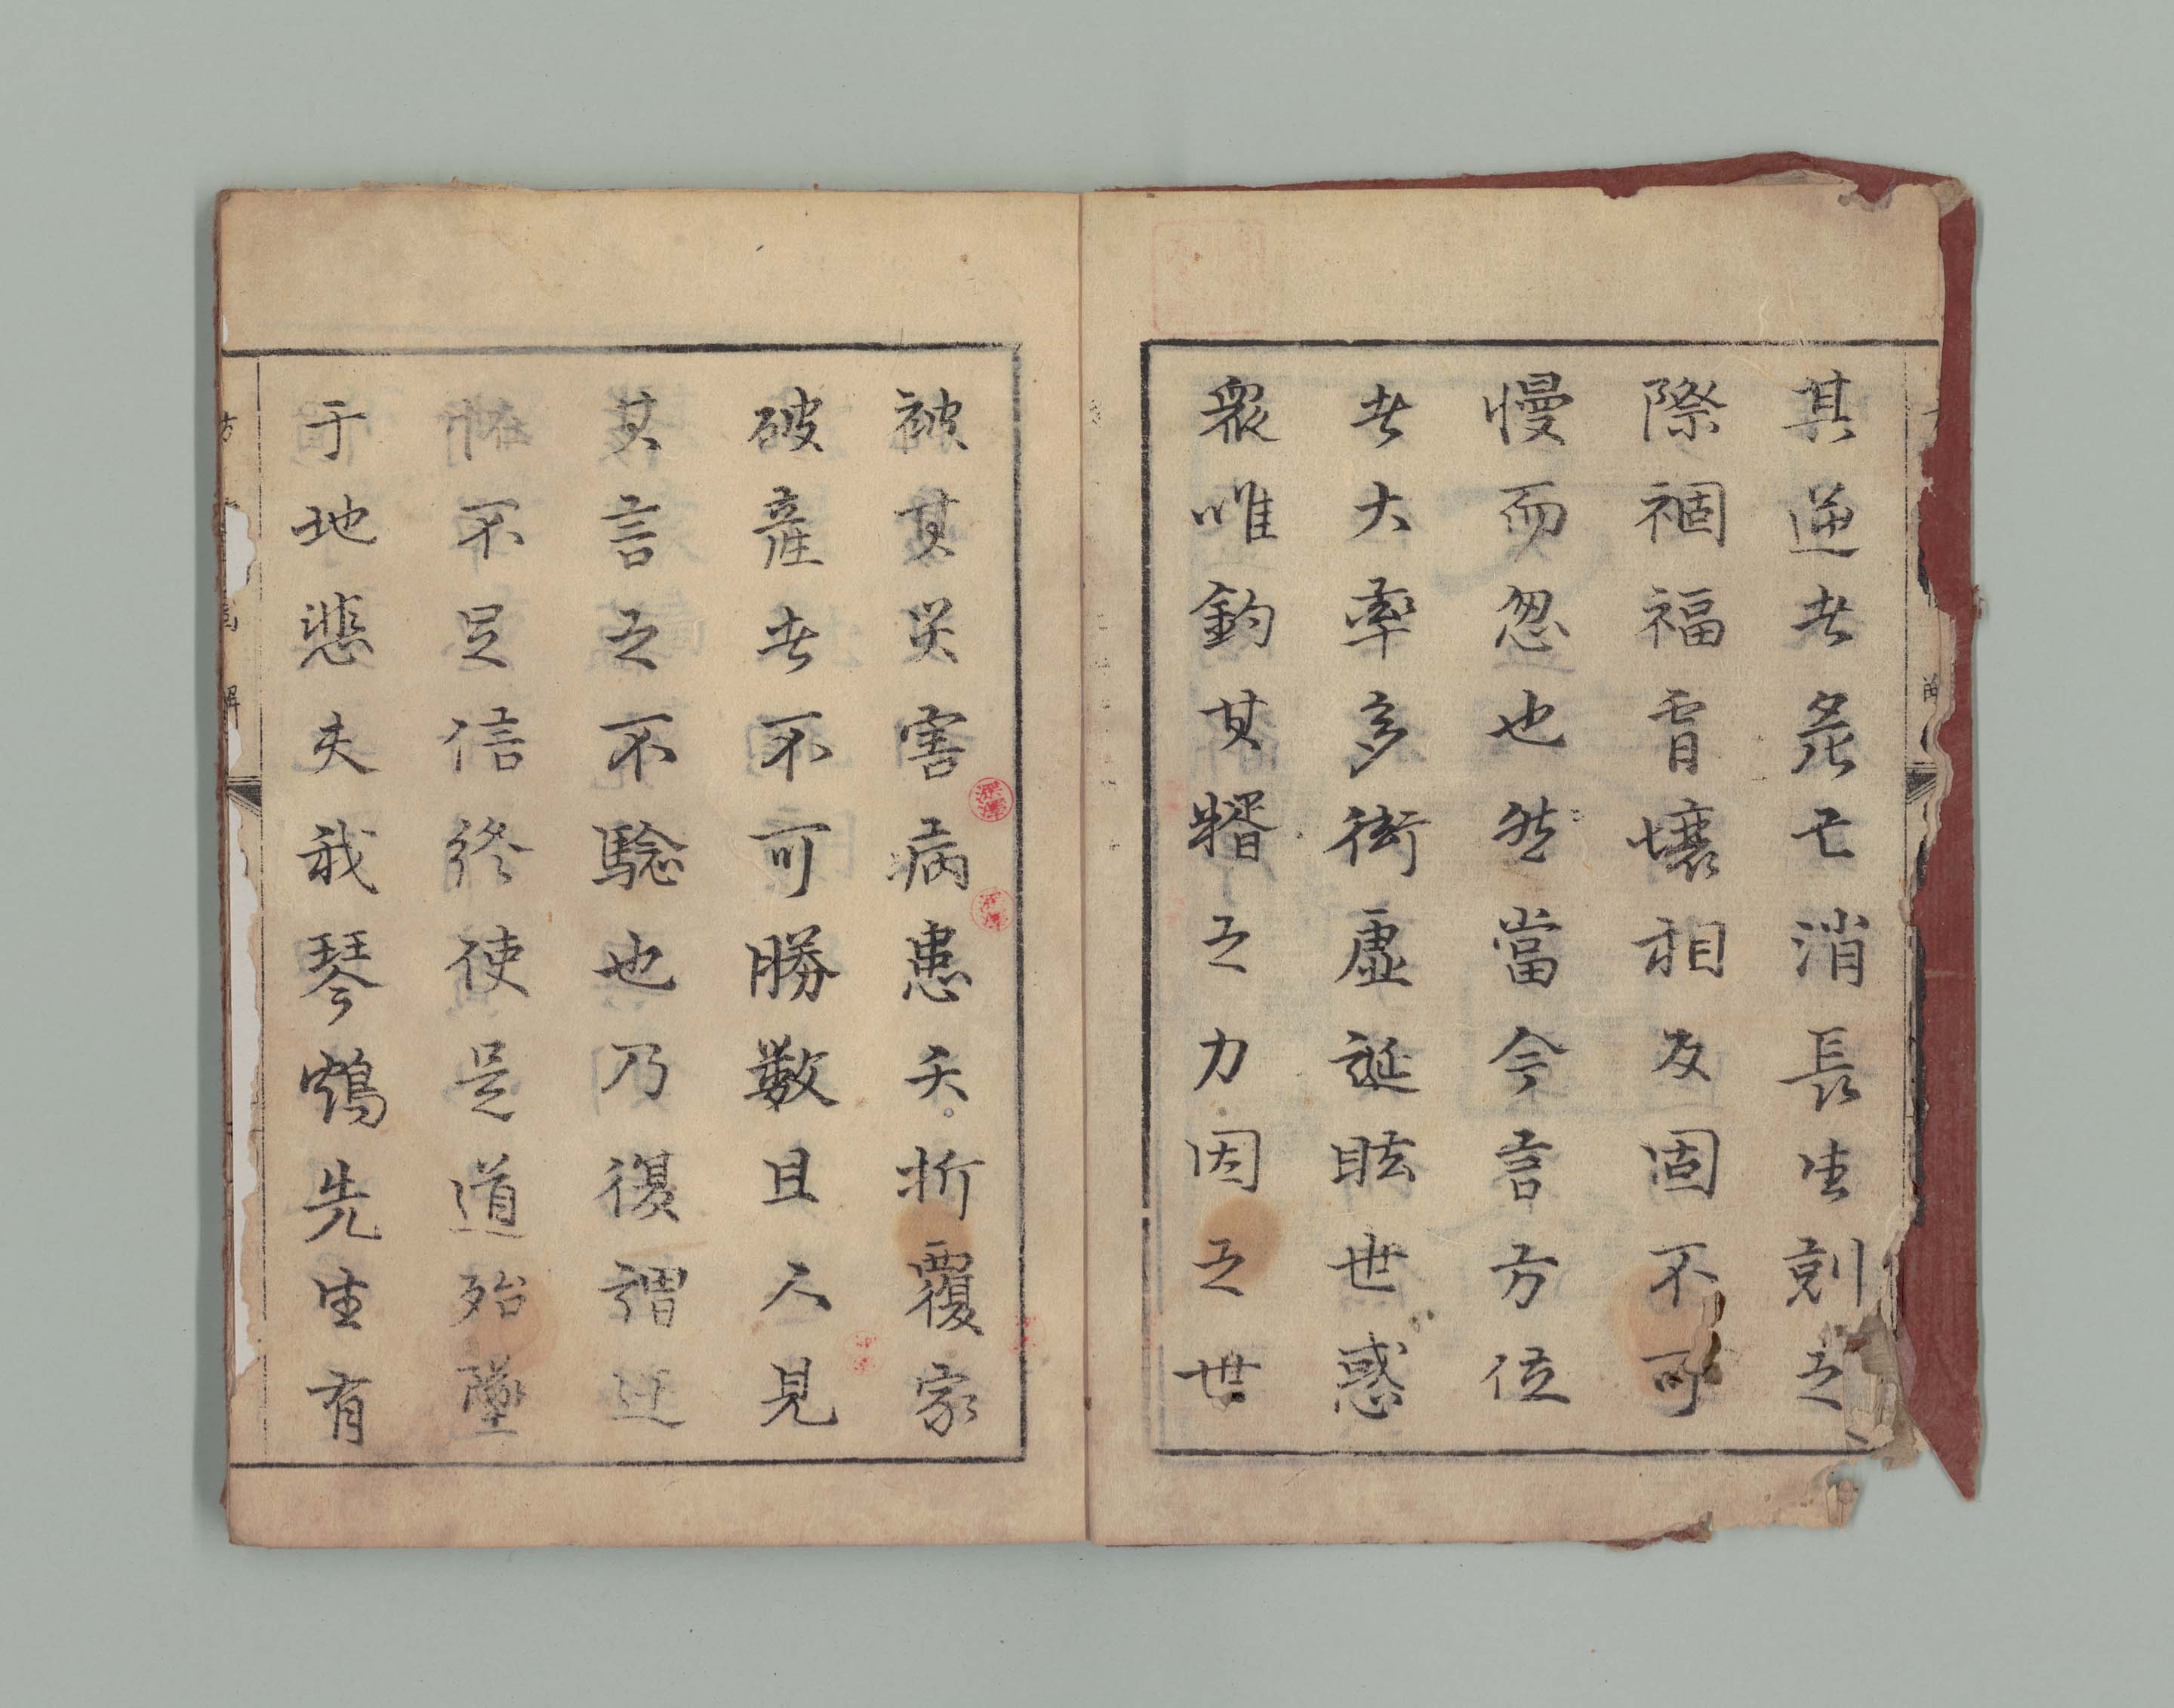 其逆者死亡消長生剋之
際禍福霄壤相反固不可
慢而忽也然當今言方位
者大率多衒虛誕眩世惑
衆唯釣其糈之力因之世
被其災害病患夭折覆家
破產者不可勝數且人見
其言之不驗也乃復謂迂
術不足信終使是道殆墜
于地悲夫我琴鶴先生有